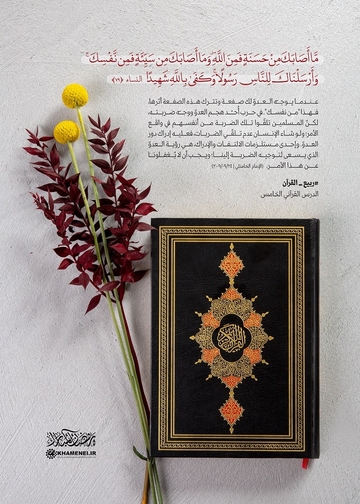 مَّا أَصَابَكَ مِنْ حَسَنَةٍ فَمِنَ اللَّهِ وَمَا أَصَابَكَ مِن سَيِّئَةٍ فَمِن نَّفْسِكَ
وَأَرْسَلْنَاكَ لِلنَّاسِ رَسُولًا وَكَفَىٰ بِاللَّهِ شَهِيدًا النساء (٧٩)
عندما يوجّه العدوّ لك صفعة وتترك هذه الصفعة أثرها،
فهذا «من نفسك». في حرب أُحد هجم العدوّ ووجّه ضربته،
لكنّ المسلمين تلقّوا تلك الضربة من أنفسهم في واقع
الأمر؛ ولو شاء الإنسان عدم تلقّي الضربات، فعليه إدراك دور
العدوّ. وإحدى مستلزمات الالتفات والإدراك، هي رؤية العدوّ
الذي يسعى لتوجيه الضربة إلينا؛ ويجب أن لا يُغفلوننا
عن هذا الأمر. (الإمام الخامنئي)
#ربيع_القرآن
الدرس القرآني الخامس
KHAMENEI.IR